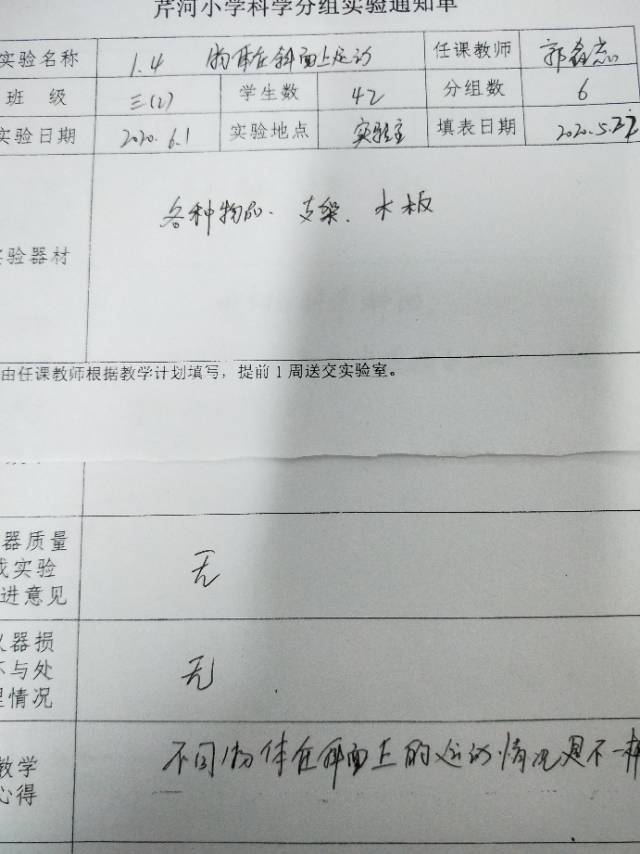 芹河小学科学分组实验通知单
实验名称 1.4 物体在斜面上运动 任课教师
班 级 三(2) 学生数 42 分组数 6
实验日期 2020.6.1 实验地点 实验室 填表日期 2020.5.22
各种物品、支架、木板
验器材
由任课教师根据教学计划填写，提前1周送交实验室。
器质量
实验 无
进意见
器损
与处 无
情况
教学 不同物体在斜面上的运动情况是不一样
心得